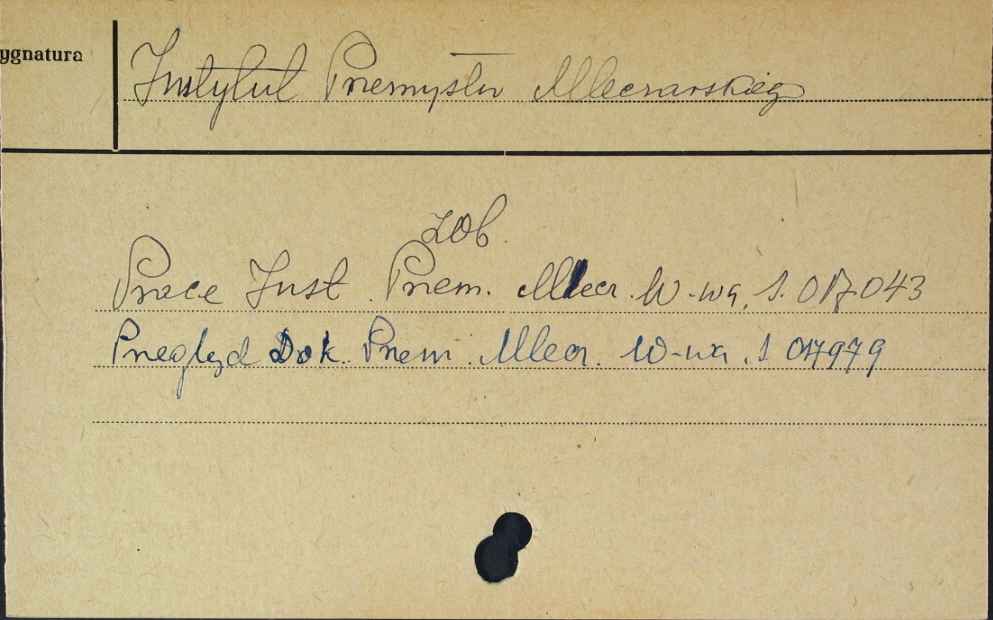 ygnatura
Instytut Przemysłu Mleczarskiego
zob.
Prace Inst. Przem. Mlecz. W-wa, S. 017043
Przegląd Dok. Przem. Mlecz. W-wa, S 017979